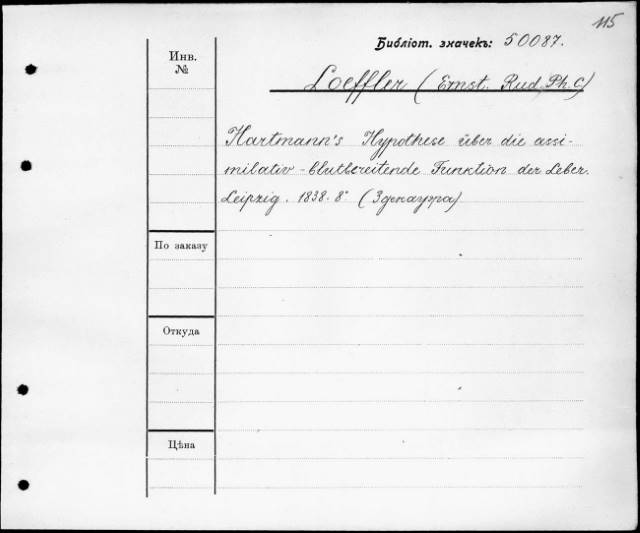 115
Библіот. значекъ: 50087.
Инв.
№
Loeffler (Ernst. Rud. Ph. C)
Hartmann's Hypothese über die assi-
milativ-blutbereitende Funktion der Leber.
Leipzig. 1838. 8°
По заказу
Откуда
Цѣна